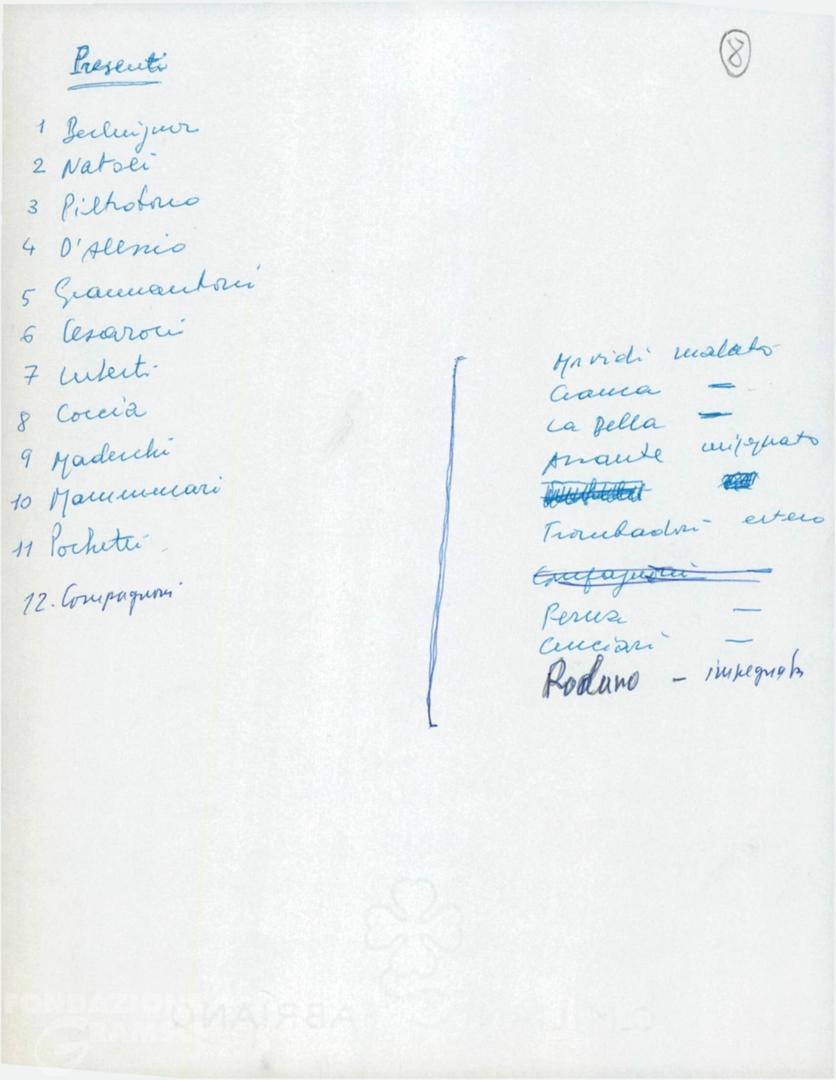 8
Presenti
1 Berlinguer
2 Natoli
3 Pietrobono
4 D'Alessio
5 Giannantoni
6 Cesaroni
7
8 Coccia
9 Maderchi
10 Mammucari
11 Pochetti
12. Compagnoni
malato
Cianca —
La Bella —
Assante impegnato
Trombadori estero
Compagnoni —
Perna —
Cinciari —
Rodano - impegnata
FONDAZIONE
GRAMSCI